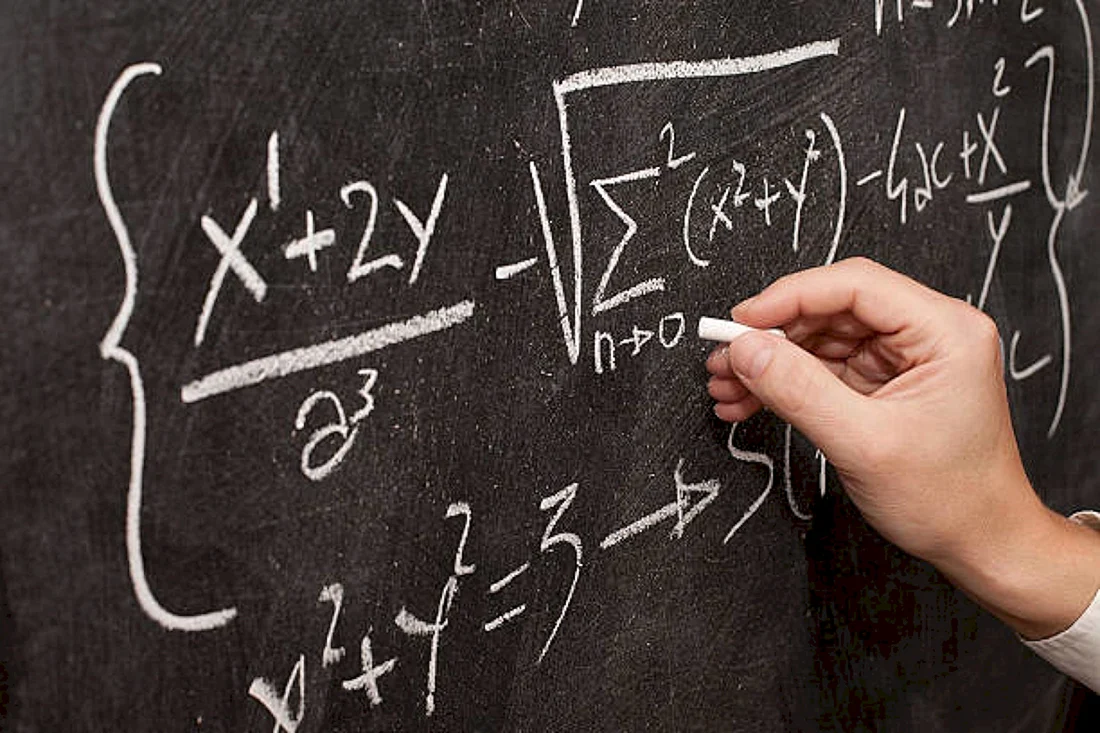 { (x¹ + 2y)/a³ - √(∑ₙ→₀² (x² + y²)) - 4ac + x²/y }
x² + y² = 3 →